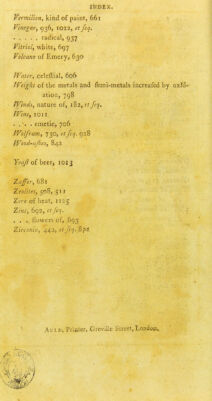 INDEX.
Vermilion, kind of paint, 661
Vinegar, 936, 1022, et seq.
. . . . . radical, 937
Vitriol, white, 697
Volcano of Emery, 630
Water, celestial, 606
Weight of the metals and semi-metals increased by oxid-
ation, 798
Winds, nature of, 182, et seq.
Wine, 1011
. . . . emetic, 706
Wolfram, 730, et seq. 928
Wood-ashes, 842
Yeast of beer, 1013
Zaffer, 681
Zeolites, 508, 511
Zero of heat, 1125
Zinc, 692, et seq.
. . . flowers of, 693
Zirconia, 442, et seq. 892
AULD, Printer, Greville Street, London.